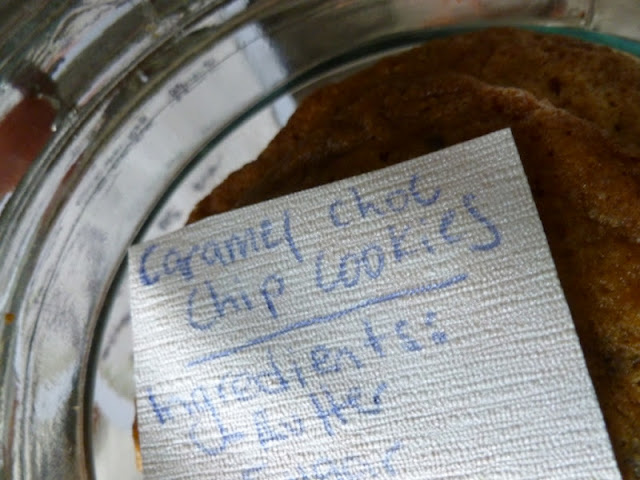 Caramel choc
chip cookies
Ingredients:
Butter